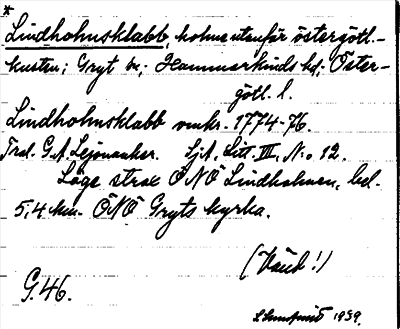 *
Lindholmsklabb, holme utanför östergötl.-
kusten; Gryt sn; Hammarkinds hd; Öster-
götl. l.
Lindholmsklabb omkr. 1774-76.
Trad. G.A. Lejonanker. SjA, Litt. III, N:o 12.
Läge strax ÖNÖ Lindholmen, bel.
5,4 km. ÖNÖ Gryts kyrka.
(Väub!)
G.46.
1939.